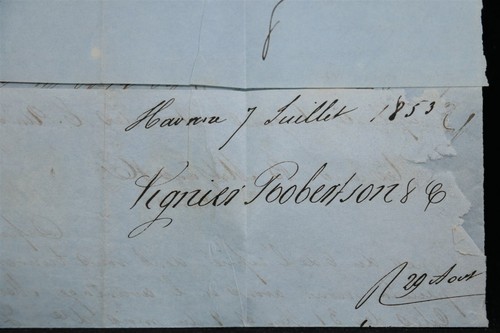 Havane 7 Juillet 1853
Vignier Robertson & C
R 29 Aout